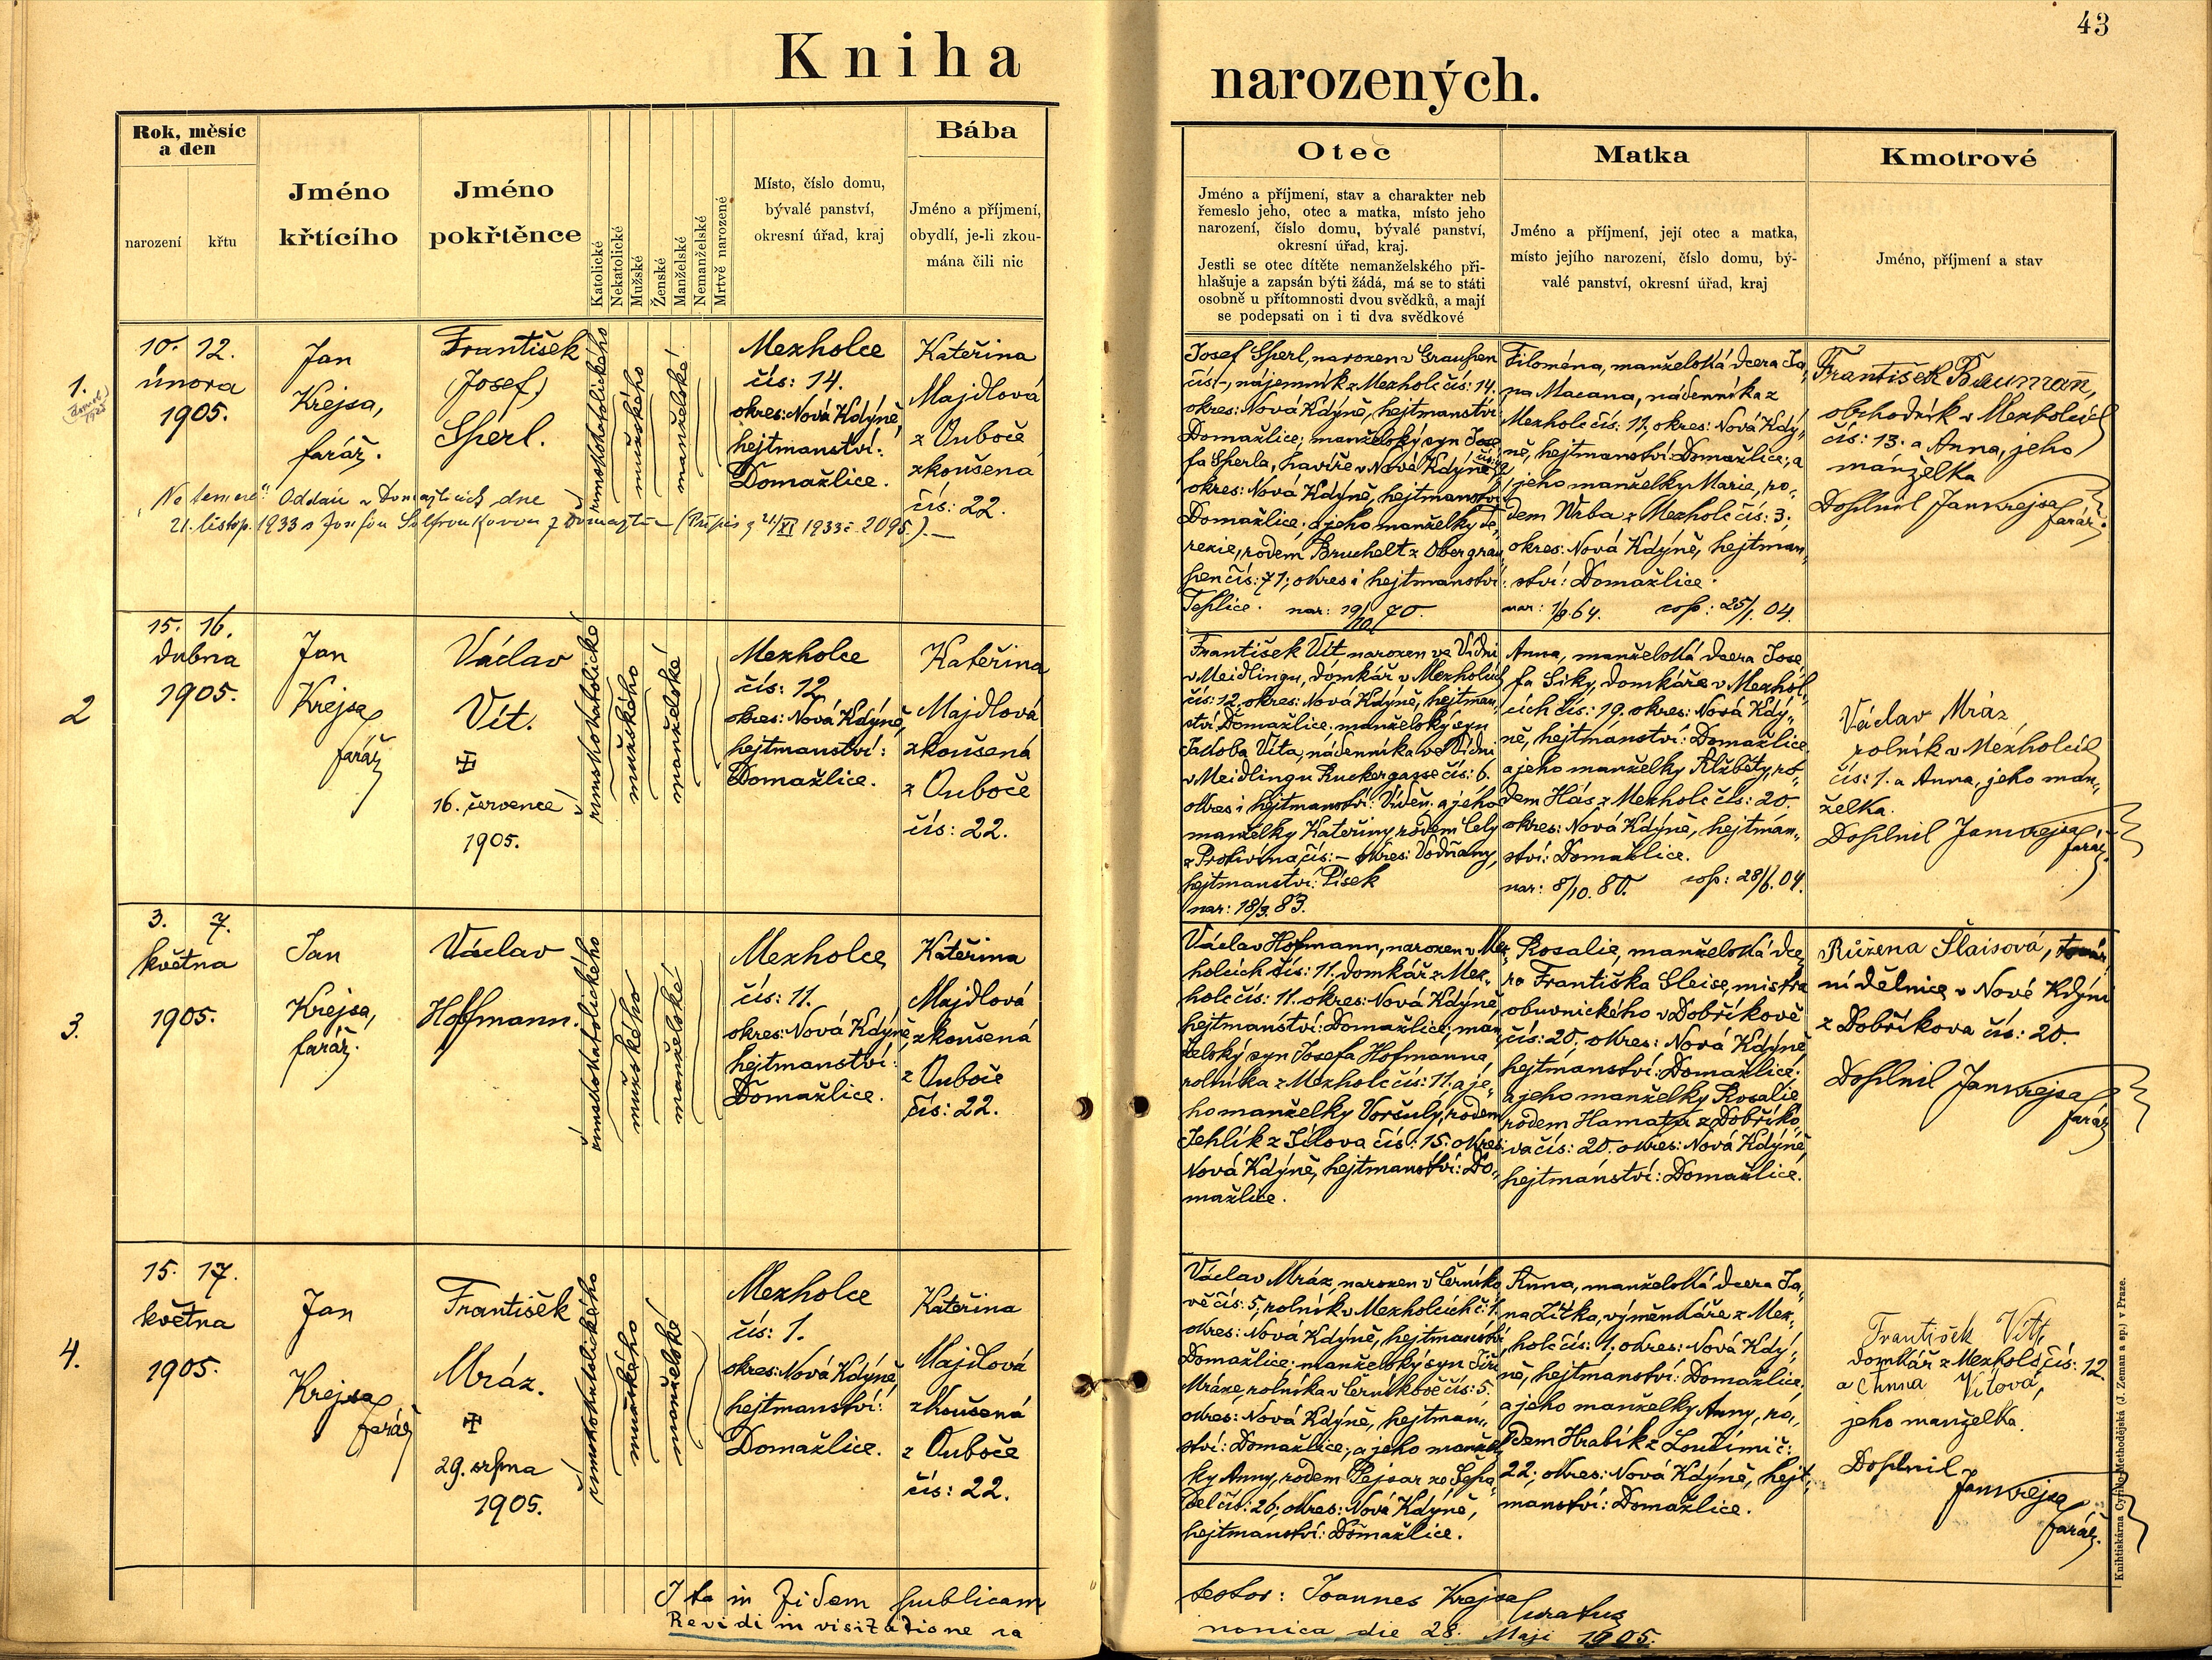 43
Kniha narozených.
Rok, měsíc
a den
narození
křtu
Jméno
křtícího
Jméno
pokřtěnce
Katolické
Nekatolické
Mužské
Ženské
Manželské
Nemanželské
Mrtvě narozené
Místo, číslo domu,
bývalé panství,
okresní úřad, kraj
Bába
Jméno a příjmení,
obydlí, je-li zkou-
mána čili nic
Otec
Jméno a příjmení, stav a charakter neb
řemeslo jeho, otec a matka, místo jeho
narození, číslo domu, bývalé panství,
okresní úřad, kraj.
Jestli se otec dítěte nemanželského při-
hlašuje a zapsán býti žádá, má se to státi
osobně u přítomnosti dvou svědků, a mají
se podepsati on i ti dva svědkové
Matka
Jméno a příjmení, její otec a matka,
místo jejího narození, číslo domu, bý-
valé panství, okresní úřad, kraj
Kmotrové
Jméno, příjmení a stav
1.
10. 12.
února
1905.
Jan
Krejsa,
farář.
František
(Josef)
Sperl.
římskokatolického
mužského
manželské
Mezholce
čís: 14.
okres: Nová Kdýně,
hejtmanství:
Domažlice.
Kateřina
Majdlová
z Ouboče
zkoušená
čís: 22.
"Ne temere" Oddán v Domažlicích dne
21. listop. 1933 s
1933 č. 2095.).
Josef Sperl, narozen v Graupen
čís: -, nájemník z Mezholc čís: 14.
okres: Nová Kdýně, hejtmanství
Domažlice; manželský syn Jose
fa Sperla, havíře v Nové Kdýně
okres: Nová Kdýně, hejtmanství
Domažlice; a jeho manželky Te-
rezie, rodem Bruchelt z Obergrau
pen čís: 71; okres i hejtmanství:
Teplice. nar: 19/10 70.
Filoména, manželská dcera Ja„
na Macana, nádenníka z
Mezholc čís: 11, okres: Nová Kdý„
ně, hejtmanství: Domažlice; a
jeho manželky Marie, ro„
dem Wrba z Mezholc čís: 3.
okres: Nová Kdýně, hejtman„
ství: Domažlice.
nar: 1/9. 64. cop: 25/1. 04.
František Baumann,
obchodník v Mezholcích
čís: 13. a Anna, jeho
manželka
Doplnil Jan Krejsa
farář.
2
15. 16.
dubna
1905.
Jan
Krejsa
farář
Václav
Vít.
16. července
1905.
římskokatolické
mužského
manželské
Mezholce
čís: 12
okres: Nová Kdýně,
hejtmanství:
Domažlice.
Kateřina
Majdlová
zkoušená
z Ouboče
čís: 22.
František Vít narozen ve Vídni
v Meidlingu, domkář v Mezholcích
čís: 12. okres: Nová Kdýně, hejtman„
ství Domažlice. manželský syn
Jakoba Víta, nádenníka ve Vídni
v Meidlingu Ruckergasse čís: 6.
okres i hejtmanství: Vídeň. a jeho
manželky Kateřiny, rodem Cely
z Protivína čís: - okres: Vodňany,
hejtmanství: Písek
nar: 18/3. 83.
Anna, manželská dcera Jose„
fa Siky, domkáře v Mezhol„
cích čís: 19. okres: Nová Kdý„
ně, hejtmanství: Domažlice
a jeho manželky Alžběty, ro„
dem Hás z Mezholc čís: 20.
okres: Nová Kdýně, hejtman„
ství: Domažlice.
nar: 8/10. 80. cop: 28/6. 04.
Václav Mráz
rolník v Mezholcích
čís: 1. a Anna, jeho man„
želka.
Doplnil Jan Krejsa
farář.
3.
3. 7.
května
1905.
Jan
Krejsa,
farář.
Václav
Hoffmann.
římskokatolického
mužského
manželské
Mezholce
čís: 11.
okres: Nová Kdýně,
hejtmanství:
Domažlice.
Kateřina
Majdlová
zkoušená
z Ouboče
čís: 22.
Václav Hofmann, narozen v Mez„
holcích čís: 11. domkář z Mez„
holc čís: 11. okres: Nová Kdýně,
hejtmanství: Domažlice; man„
želský syn Josefa Hofmanna,
rolníka z Mezholc čís: 11. a je„
ho manželky Voršuly, rodem
Jehlík z Jílova čís: 15. okres:
Nová Kdýně, hejtmanství: Do„
mažlice.
Rosalie, manželská dce„
ra Františka Sleise, mistra
obuvnického v Dobříkově
čís: 20. okres: Nová Kdýně
hejtmanství: Domažlice.
a jeho manželky Rosalie
rodem Hamata z Dobříko„
va čís: 20. okres: Nová Kdýně,
hejtmanství: Domažlice.
Růžena Šlaisová, továr
ní dělnice v Nové Kdýni
z Dobříkova čís: 20.
Doplnil Jan Krejsa
farář
4.
15. 17.
května
1905.
Jan
Krejsa
farář
František
Mráz.
29. srpna
1905.
římskokatolického
mužského
manželské
Mezholce
čís: 1.
okres: Nová Kdýně,
hejtmanství:
Domažlice.
Kateřina
Majdlová
zkoušená
z Ouboče
čís: 22.
Václav Mráz, narozen v Černíko
vě čís: 5, rolník v Mezholcích č: 1.
okres: Nová Kdýně, hejtmanství
Domažlice; manželský syn Jiří
Mráze, rolníka v Černíkově čís: 5.
okres: Nová Kdýně, hejtman„
ství: Domažlice, a jeho manžel
ky Anny, rodem Pejsar ze
čís: 26; okres: Nová Kdýně,
hejtmanství: Domažlice.
Anna, manželská dcera Ja„
na Žítka, výměnkáře z Mez„
holc čís: 1. okres: Nová Kdý„
ně, hejtmanství: Domažlice,
a jeho manželky Anny, ro„
dem Hrabík z Loučimi č:
22; okres: Nová Kdýně, hejt„
manství: Domažlice.
František Vít,
domkář z Mezholc čís: 12
a Anna Vítová,
jeho manželka.
Doplnil
Jan Krejsa
farář.
Ita in fidem publicam testor: Joannes Krejsa
curatus
Revidi in visitatione canonica die 28. Maji 1905.
Knihtiskárna Cyrillo-Methodějská (J. Zeman a sp.) v Praze.